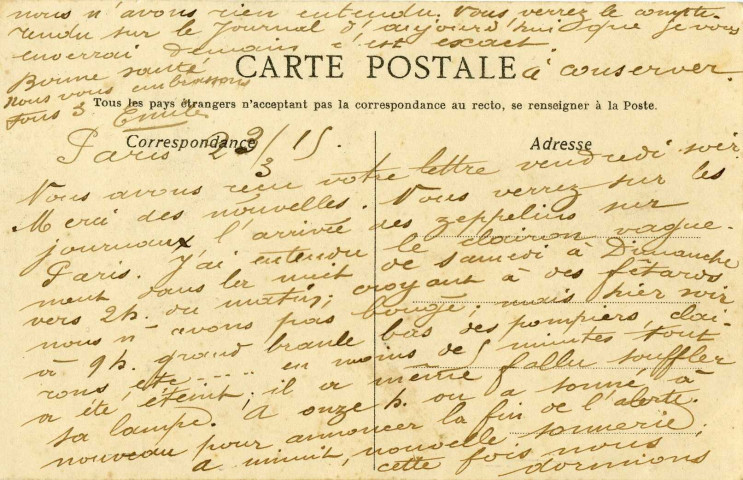 nous n'avons rien entendu. Vous verrez le compte-
rendu sur le Journal d'aujourd'hui que je vous
enverrai demain c'est exact
Bonne santé
à conserver.
Nous vous embrassons
tous 3 Emile
CARTE POSTALE
Tous les pays étrangers n'acceptant pas la correspondance au recto, se renseigner à la Poste.
Correspondance
Adresse
Paris 23/3 15.
Nous avons reçu votre lettre vendredi soir
Merci des nouvelles. Vous verrez sur les
journaux l'arrivée des zeppelins sur
Paris. J'ai entendu le clairon vague-
ment dans la nuit de samedi à Dimanche
vers 2h. du matin; croyant à des fêtards
nous n'avons pas bougé; mais hier soir
à 9h. grand branle bas des pompiers, clai-
rons, etc..... en moins de 5 minutes tout
a été éteint; il a même fallu souffler
sa lampe. A onze h. on a sonné à
nouveau pour annoncer la fin de l'alerte.
a minuit, nouvelle sonnerie;
cette fois nous dormions